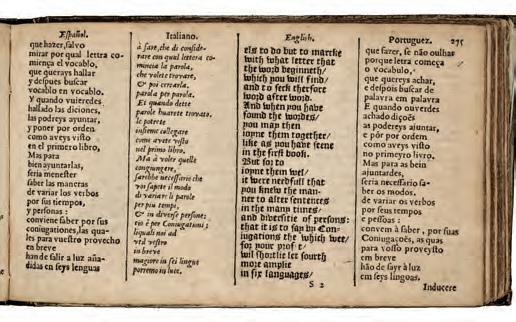 Español.
que hazer, salvo
mirar por qual lettra co-
miença el vocablo,
que querays hallar
y despues buscar
vocablo en vocablo.
Y quando vuierdes
hallado las diciones,
las podreys ayuntar,
y poner por orden
como aveys visto
en el primero libro,
Mas para
bien ayuntarlas,
seria menester
saber las maneras
de variar los verbos
por sus tiempos,
y personas :
conviene saber por sus
coniugationes, las qua-
les para vuestro provecho
en breve
han de salir a luz aña-
didas en seys lenguas
Italiano.
à fare, che di conside-
rare con qual lettera co-
mincia la parola,
che volete trovare,
& poi cercarla.
parola per parola.
Et quando dette
parole haurete trovato.
le potrete
insieme collegare
come avete visto
nel primo libro.
Ma à voler quelle
congiungere,
sarebbe necessario che
voi sapete il modo
di variar li parole
per piu tempi,
& in diverse persone;
cio è per Coniugationi;
liquali noi ad
vtil vostro
in breve
magiore in sei lingue
porremo in luce.
English.
els to do but to marcke
with what letter that
the word beginneth/
which you will find/
and to seek therfore
word after word.
And when you have
found the wordes/
you may then
ioyne them together/
like as you have seene
in the first book.
But for to
ioyne them wel/
it were needfull that
you knew the man-
ner to alter sentences
in the many times/
and diversitie of persons:
that it is to say by Con-
iugations the which wee/
for your profit/
wil shortlie let fourth
more amplie
in six languages/
S 2
Portuguez. 275
que fazer, se não oulhar
porque letra começa
o vocabulo,
que queyrays achar,
e despois buscar de
palavra em palavra
E quando ouverdes
achado dições
as podereys ajuntar,
e pór por ordem
como aveys visto
no primeyro livro.
Mas para as bein
ajuntardes,
seria necessario sa-
ber os modos,
de variar os verbos
por seus tempos
e pessoas :
convem à saber, por suas
Coniugações, as quas
para vosso proveyto
em breve
hão de sayr à luz
em seys linguas.
Inducere